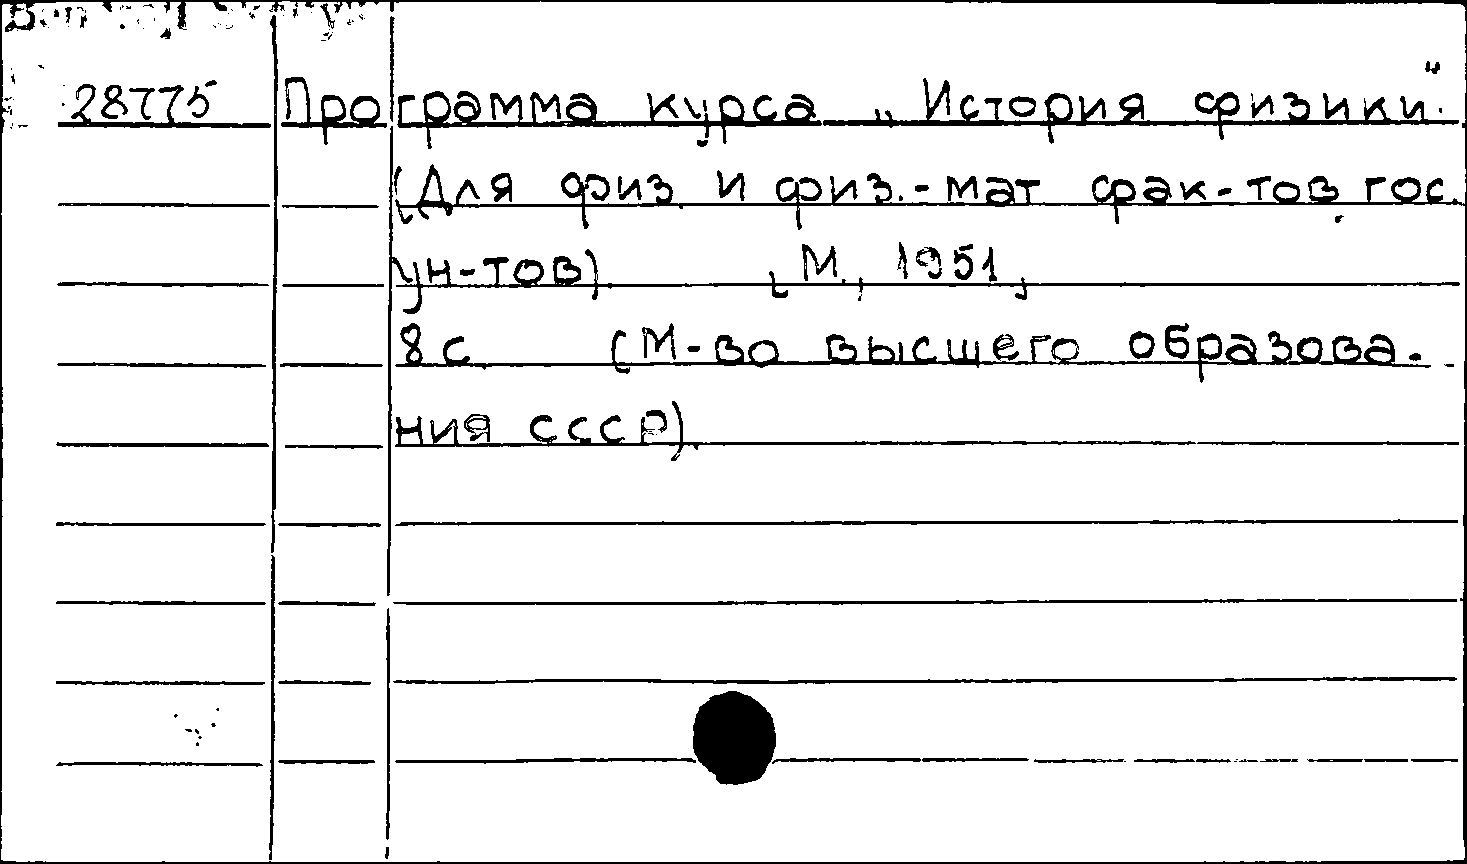 28775 Программа курса „История физики".
(Для физ. и физ.-мат фак-тов гос.
ун-тов). [М., 1951]
8 с. (М-во высшего образова-
ния СССР).